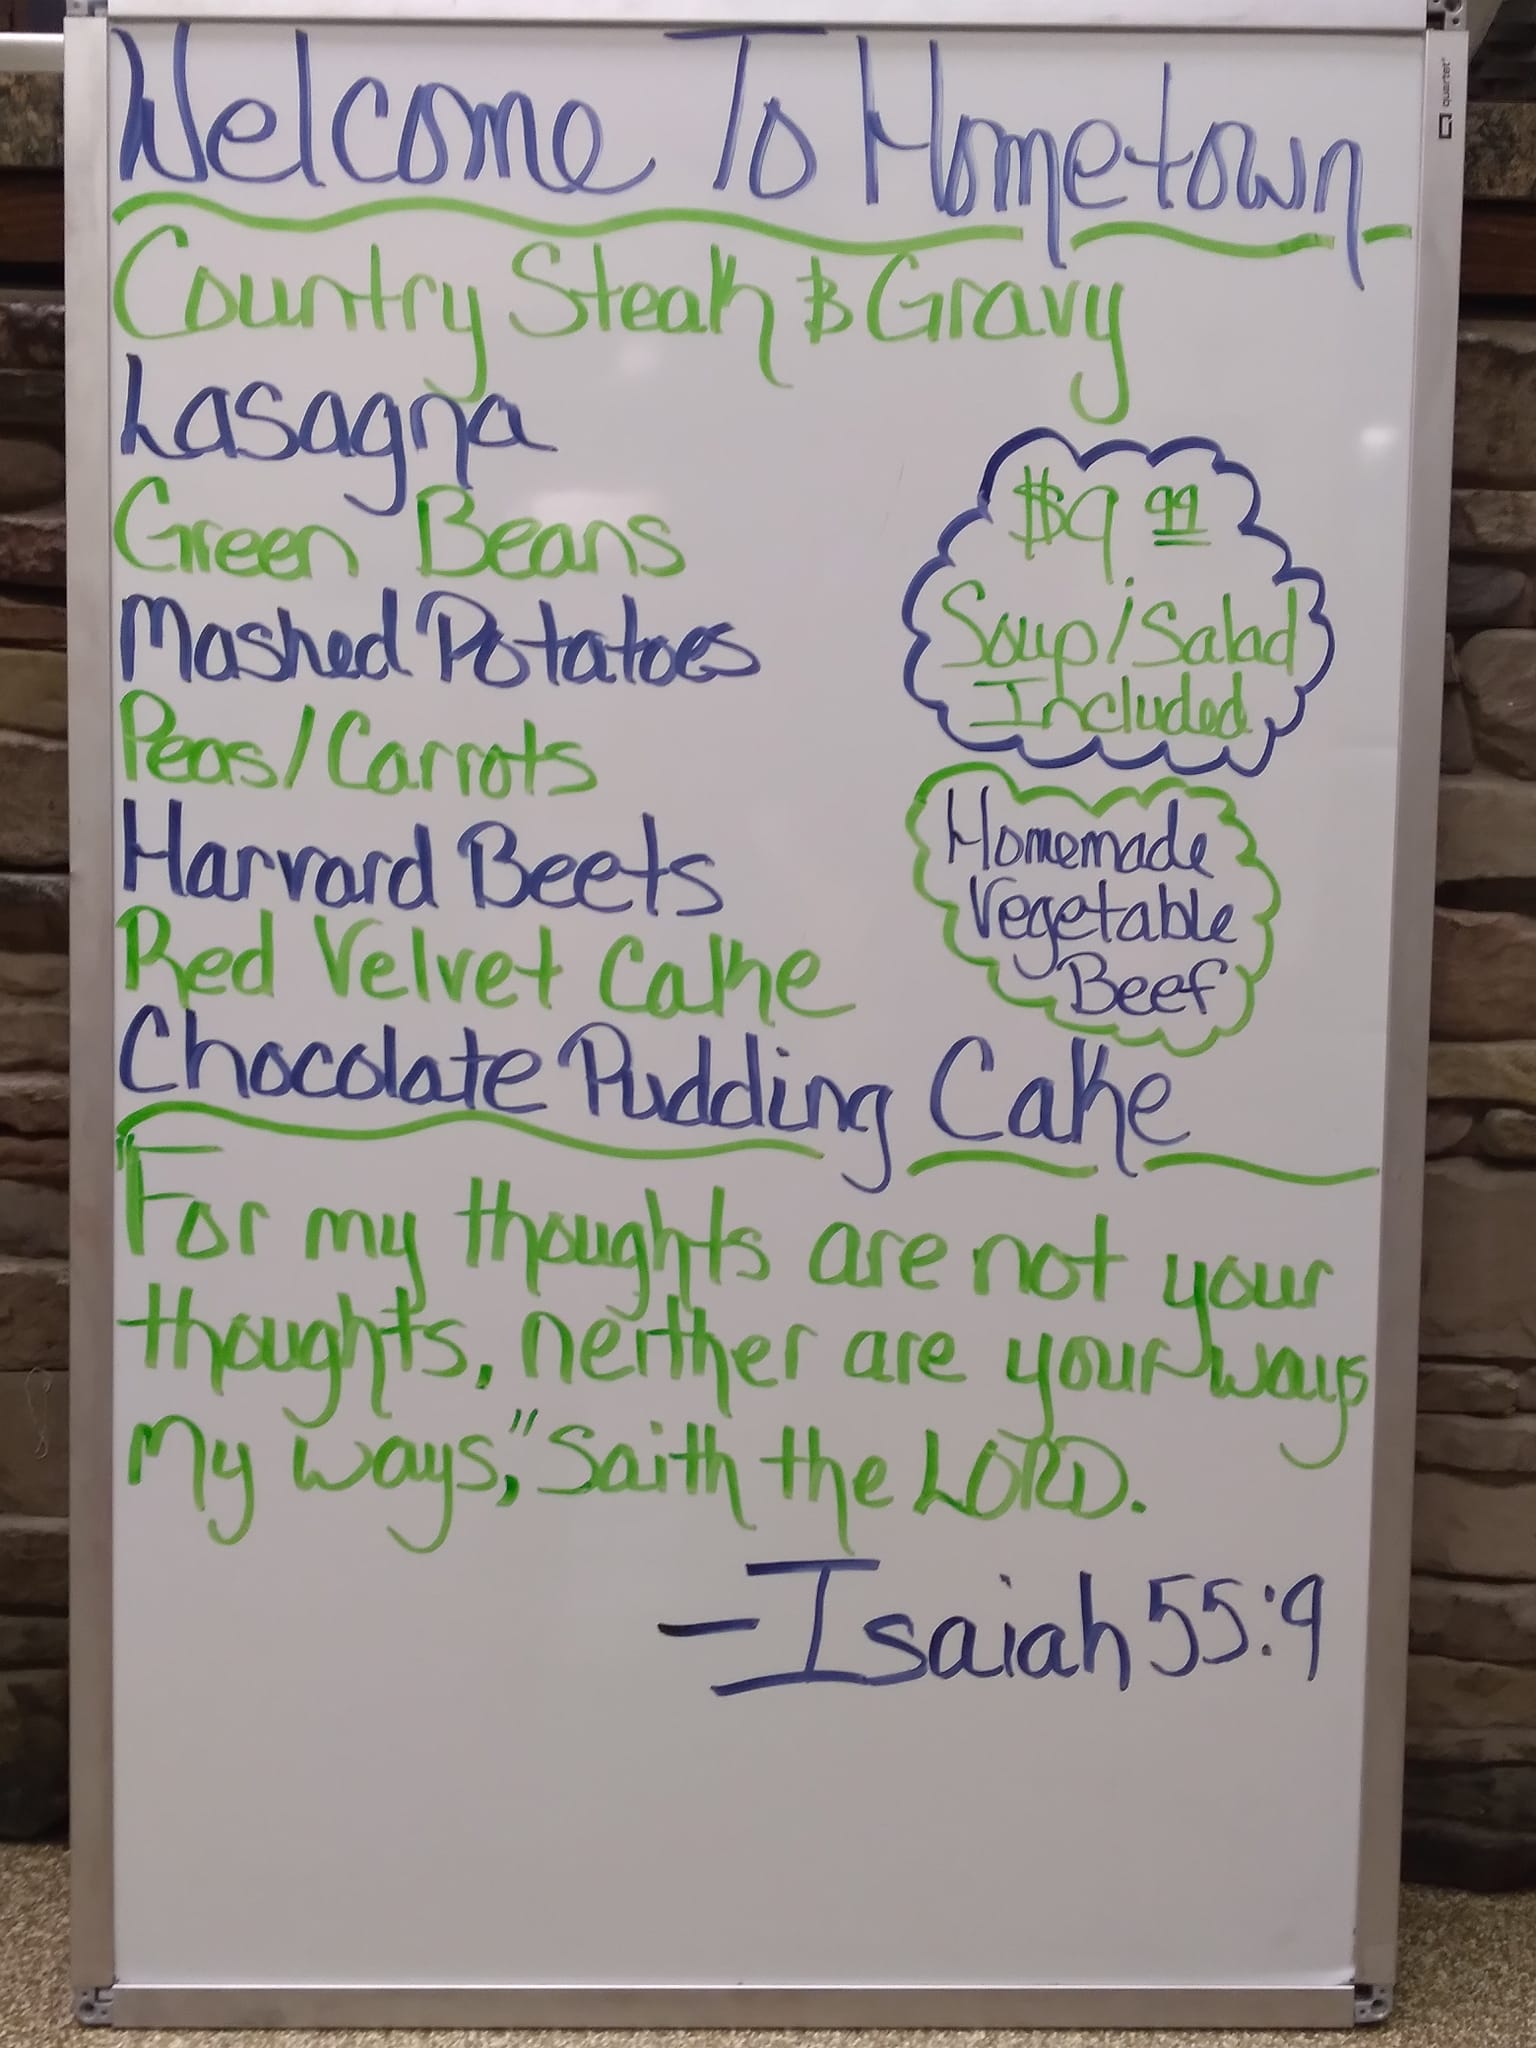 Welcome To Hometown
Country Steak & Gravy
Lasagna
Green Beans
Mashed Potatoes
Peas/Carrots
Harvard Beets
Red Velvet Cake
Chocolate Pudding Cake
$9 99
Soup/Salad
Included
Homemade
Vegetable
Beef
"For my thoughts are not your
thoughts, neither are your ways
My ways," Saith the LORD.
-Isaiah 55:9
quartet